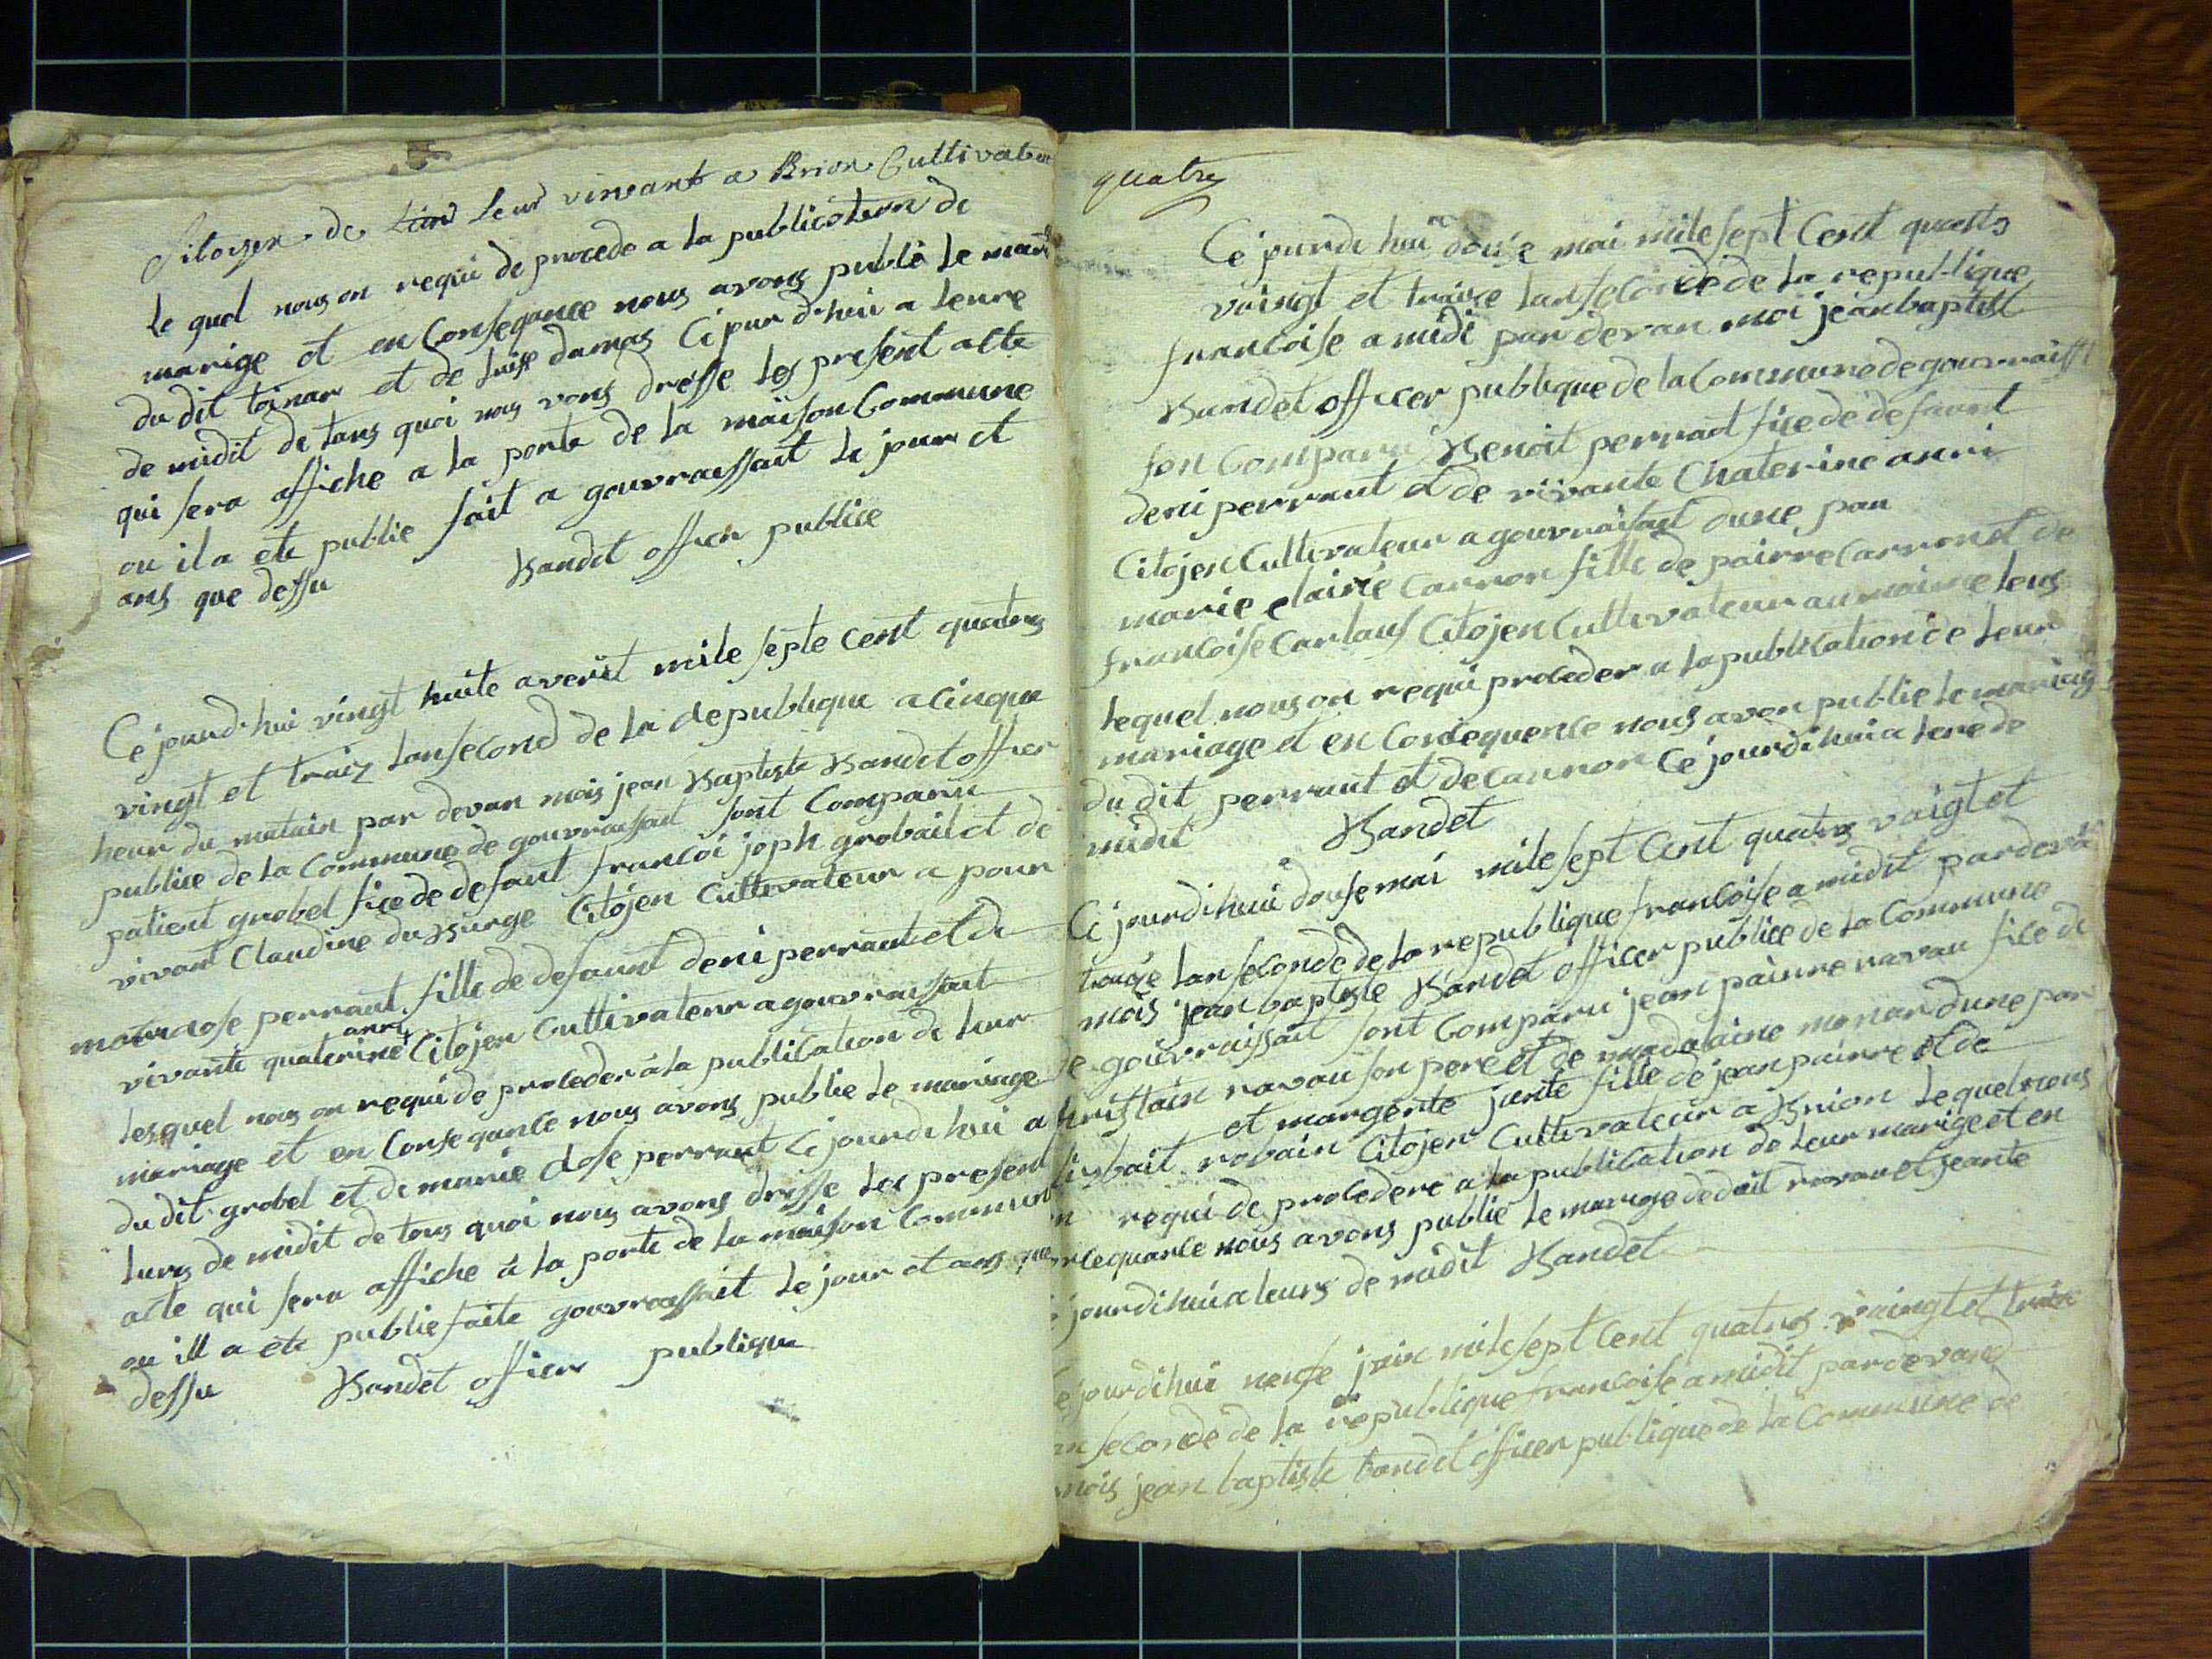 Sitoyen de Lieu leur vivant a Brion Cultivateur
le quel nous on requi de procede a la publication de
marige et en Consequance nous avons publé le mari
du dit toinar et de Luise damas Ce jour d'hui a leure
de midit de tans quoi nous vons dresse les present acte
qui sera affiche a la porte de la maison Commune
ou il a ete publie fait a gouvraissait le jour et
ans que dessu Bandet officn publice
Ce jourd'hui vingt huite averit mile septe cent quatres
vingt et traiz lan second de la republique a Cinque
heur du matain par devan mois jean Baptiste Bandet officr
publice de la Commune de gouvraissait sont Comparu
patient grobel fice de defaunt francoi joph grobail et de
vivant Claudine du Burge Citojen Cultivateur a pour
marie close perraut fille de defaunt deni perraut et de
vivante quaterine anri Citojen Cultivateur a gouvraissait
lesquel nous on requi de proceder a la publication de leur
mariage et en Consequance nous avons publie le mariage
du dit grobel et de marie close perraut Ce jourdihui a
lurs de midit de tous quoi nous avons dresse les present
acte qui sera affiche a la porte de la maison Commune
ou ill a ete publie faite gouvraissait le jour et ans que
dessu Bandet officer publique
quatre
Ce jourdi huì douse mai mile sept Cent quatrs
vaingt et traixe lan seconde de la republique
francoise a midi par devan moi jean baptist
Bandet officer publique de la Commune de gouvraisst
son Comparu Benoit perraut fice de defaunt
deni perraut et de vivante Chaterine anri
Citojen Cultivateur a gouvraisait dune pau
marie claire Carron fille de pairre Carron et de
francoise Carlaus Citojen Cultivateur au maime leus
lequel nous on requi proceder a la publication de leur
mariage et en Consequence nous avon publie le mariag
du dit perraut et de Carron Ce jourdi hui a lere de
midit Bandet
Ce jourdihui douse mai mile sept Cent quatrs vaigt et
traize lan seconde de la republique francoise a midit pardeva
mois jean baptiste Bandet officer publice de la Commune
de gouvraissait sont Comparu jean painrre ravau fice de
Christain ravau son pere et de madalaine monar dune par
et margerite jante fille de jean pairre et de
robain Citojen Cultivateur a Brion lequel nous
on requi de procedere a la publication de leur marige et en
Cequance nous avons publié le marige dedait ravau et jeante
Ce jourdihui a leurs de midit Bandet
Ce jourdihui neufe juin mile sept Cent quatrs vaingt et traixe
lan seconde de la republique francoise a midit pardevand
mois jean baptiste bandet officer publique de la Commune de